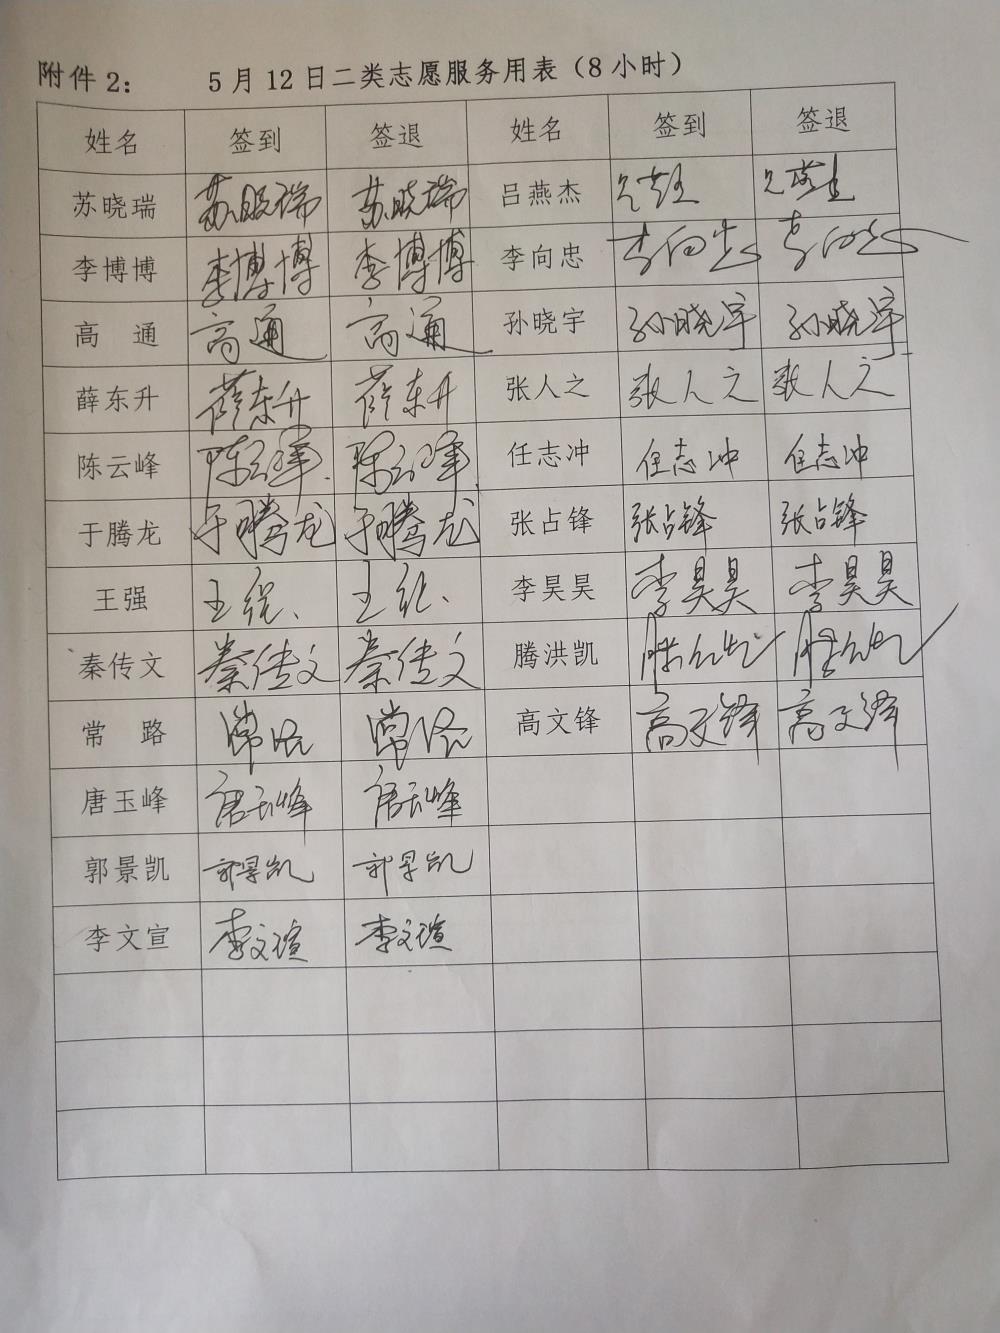 附件2： 5月12日二类志愿服务用表（8小时）
姓名 签到 签退 姓名 签到 签退
苏晓瑞 苏晓瑞 苏晓瑞 吕燕杰
李博博 李博博 李博博 李向忠 李向忠 李向忠
高 通 高通 高通 孙晓宇 孙晓宇 孙晓宇
薛东升 薛东升 薛东升 张人之 张人之 张人之
陈云峰 陈云峰 陈云峰 任志冲 任志冲 任志冲
于腾龙 于腾龙 于腾龙 张占锋 张占锋 张占锋
王强 王强 王强 李昊昊 李昊昊 李昊昊
秦传文 秦传文 秦传文 腾洪凯
常 路 常路 常路 高文锋 高文锋 高文锋
唐玉峰 唐玉峰 唐玉峰
郭景凯 郭景凯 郭景凯
李文宣 李文瑄 李文瑄